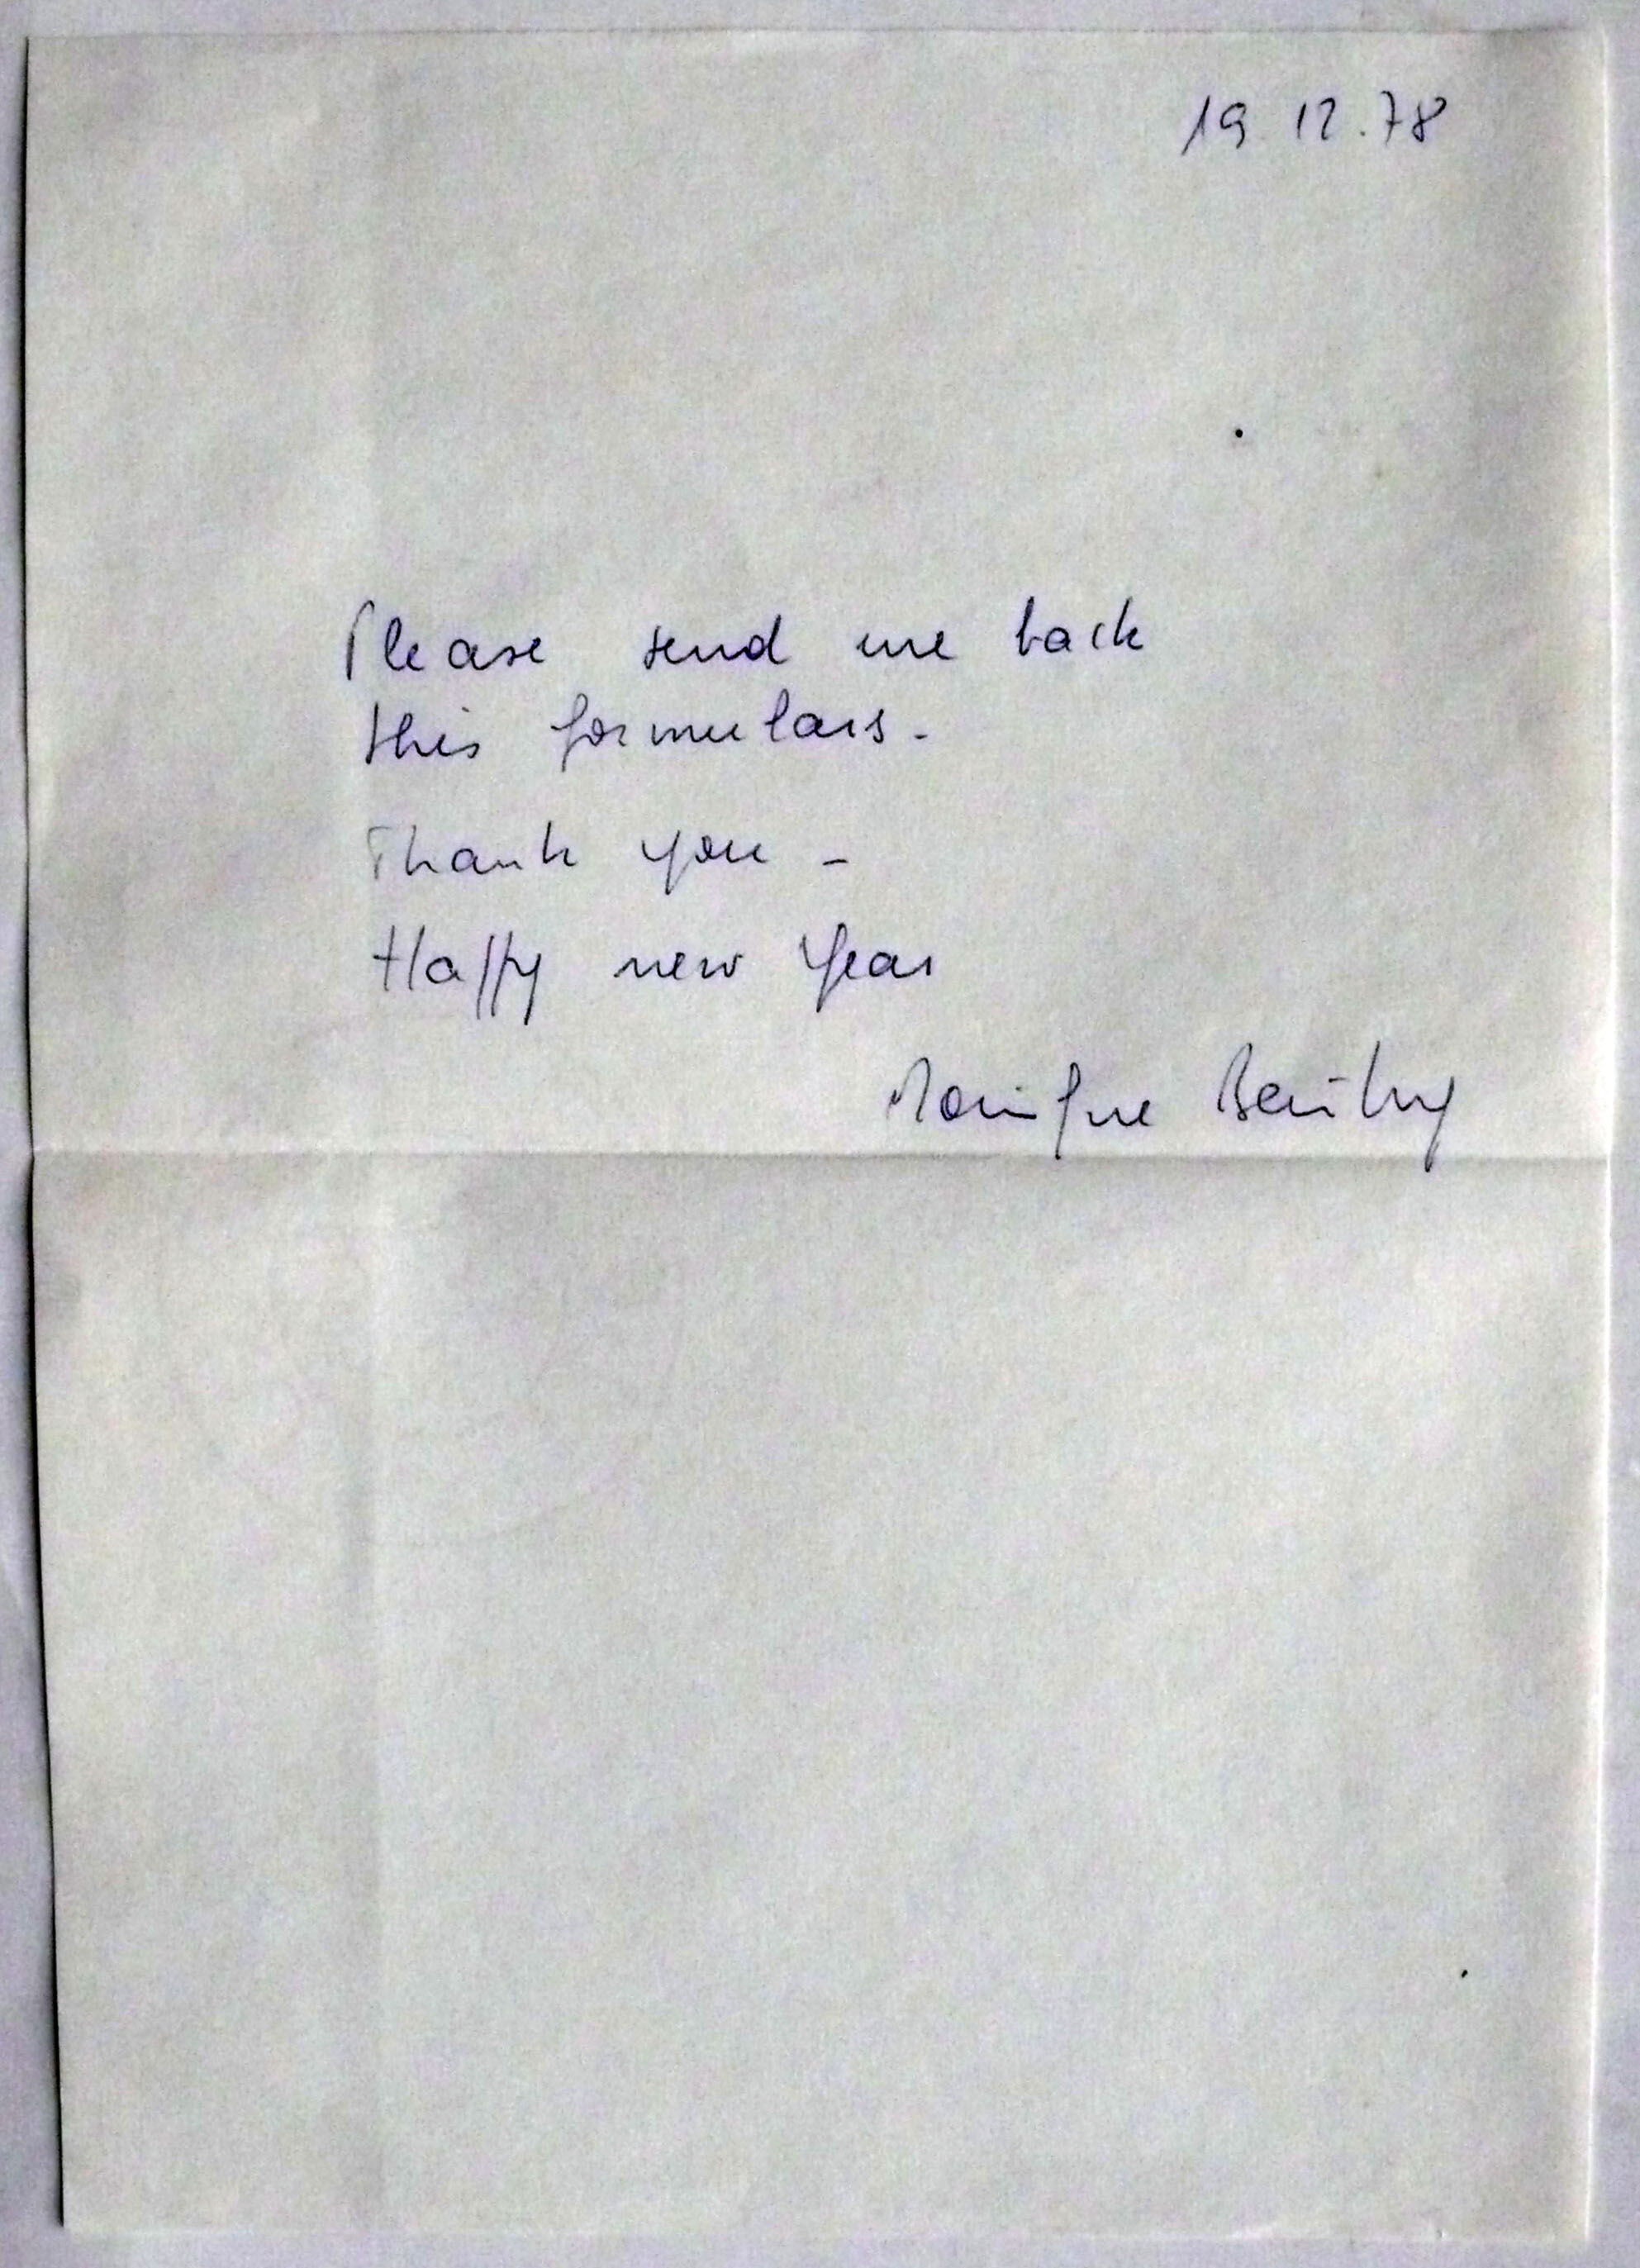 19.12.78
Please send me back
this formulars.
Thank you -
Happy new Year
Monique